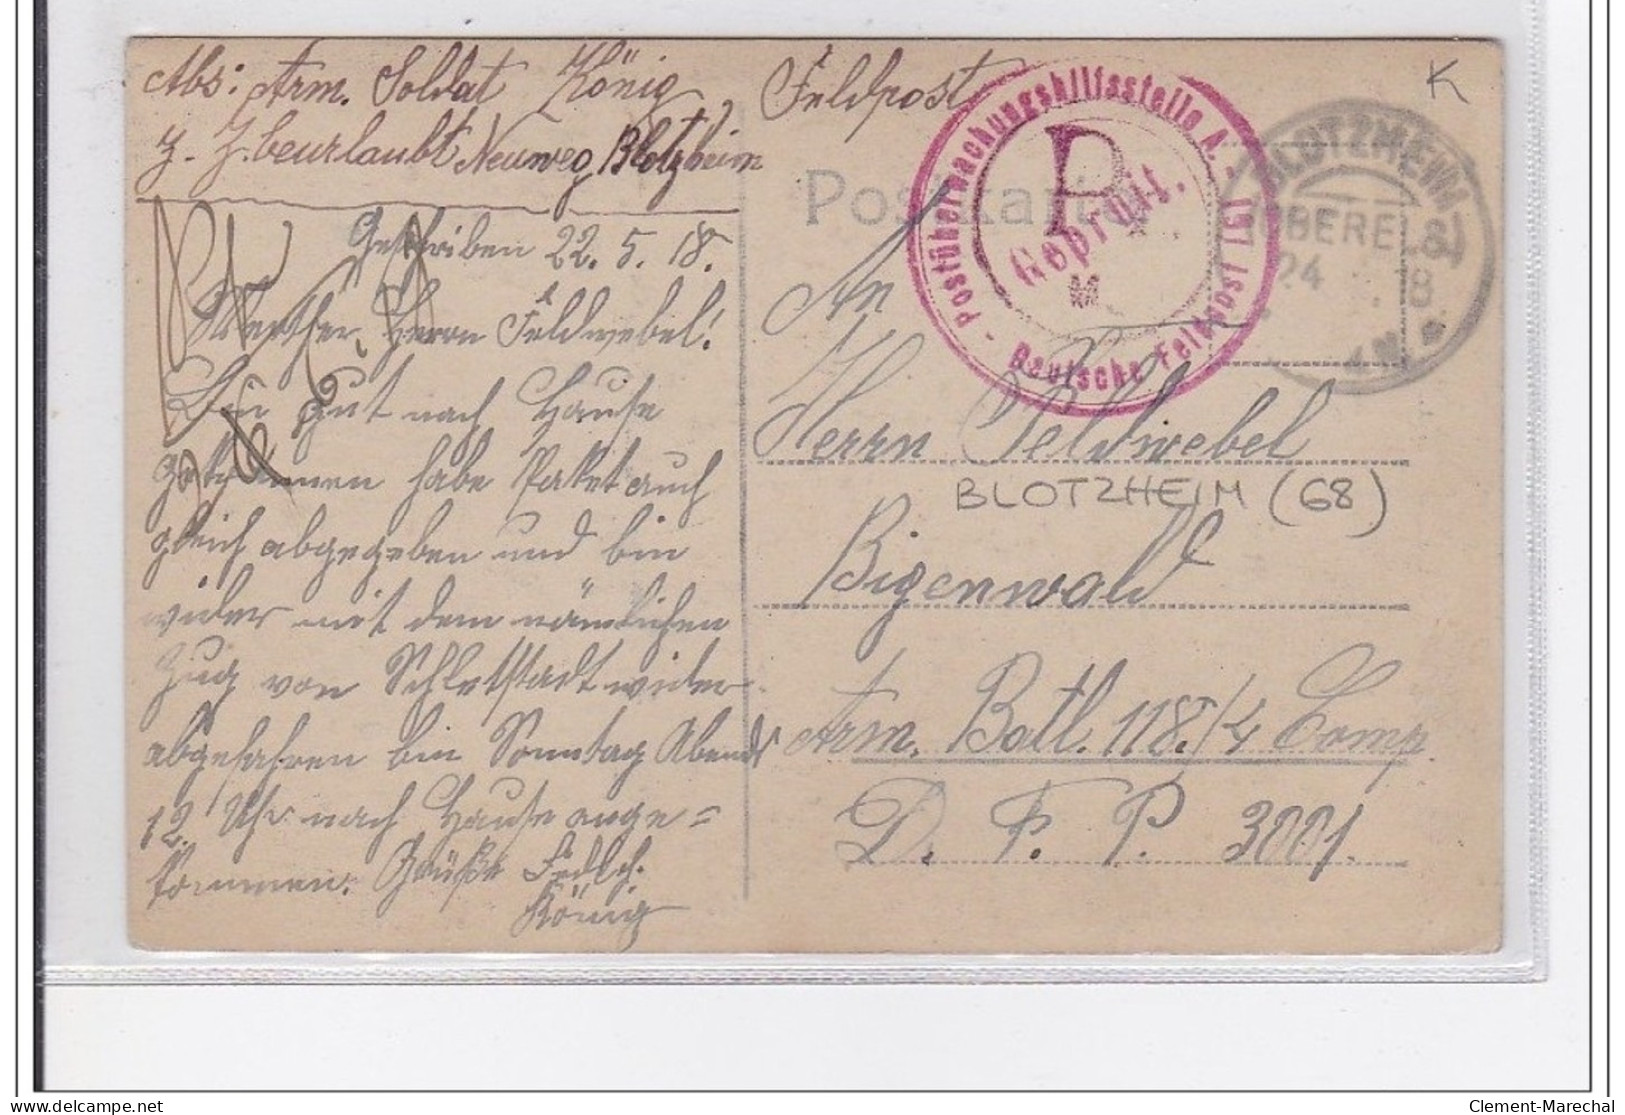 Abs: Arm. Soldat König
z. Z. beurlaubt Neuweg Blotzheim
Geschriben 22. 5. 18.
Werther Herrn Feldwebel!
Bin gut nach Hause
gekommen habe Paket auch
gleich abgegeben und bin
wider mit dem nämlichen
Zug von Schletstadt wider
abgefahren bin Sonntag Abends
12 Uhr nach Hause ange=
kommen. Grüße Fedlch.
König
Feldpost
K
Postkarte
Postüberwachungshilfsstelle A.
157
Deutsche Feldpost
P
Geprüft.
M
BLOTZHEIM
(OBERELS)
24 8
An
Herrn Feldwebel
BLOTZHEIM (68)
Bigenwald
Arm. Batl. 118./4 Comp.
D. F. P. 3001.
delcampe.net
Clement-Marechal